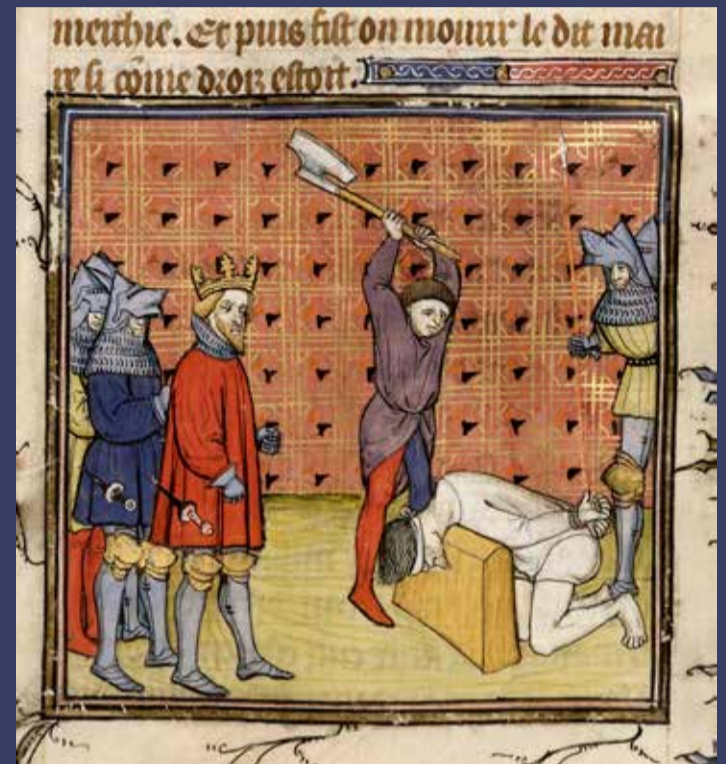 meithie. Et puis fist on mourir le dit mai
re si cõme droiz estoit.